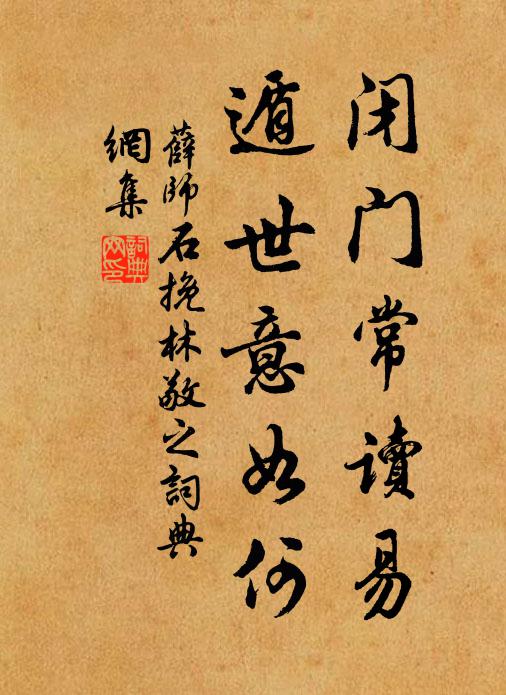 闭门常讀易
遁世意如何
薛師石挽林敬之詞典
網集
詞典
网印